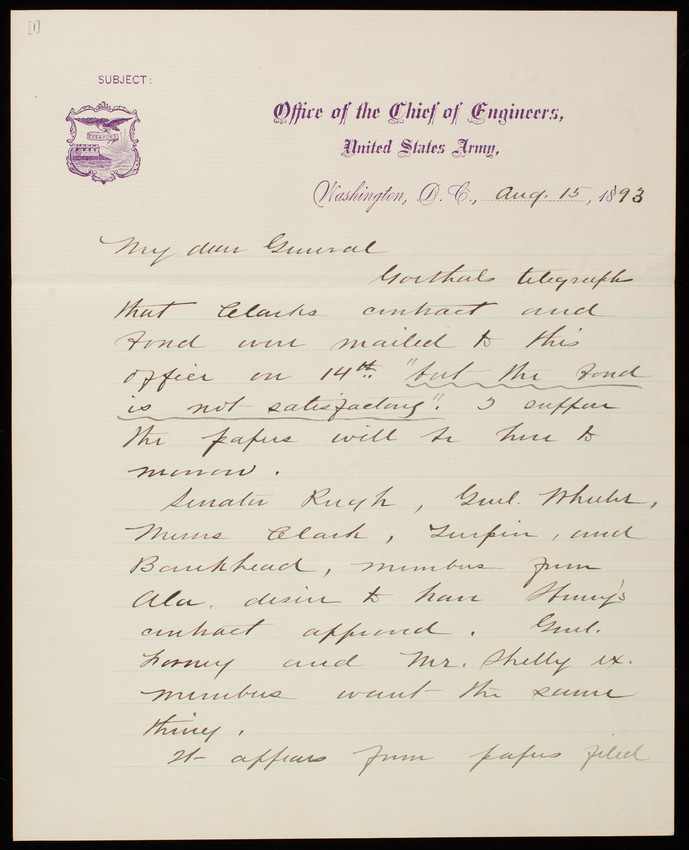 [1]
SUBJECT:
ESSAYONS
Office of the Chief of Engineers,
United States Army,
Washington, D. C., Aug. 15, 1893
My dear General
Goethals telegraphs
that Clarks contract and
bond were mailed to this
office on 14th. "but the bond
is not satisfactory". I suppose
the papers will be here to
morrow.
Senator Pugh, Genl. Wheeler,
Messrs Clark, Turpin, and
Bankhead, members from
Ala. desire to have
contract approved. Genl.
Forney and Mr. Shelly ex.
members want the same
thing.
It appears from papers filed